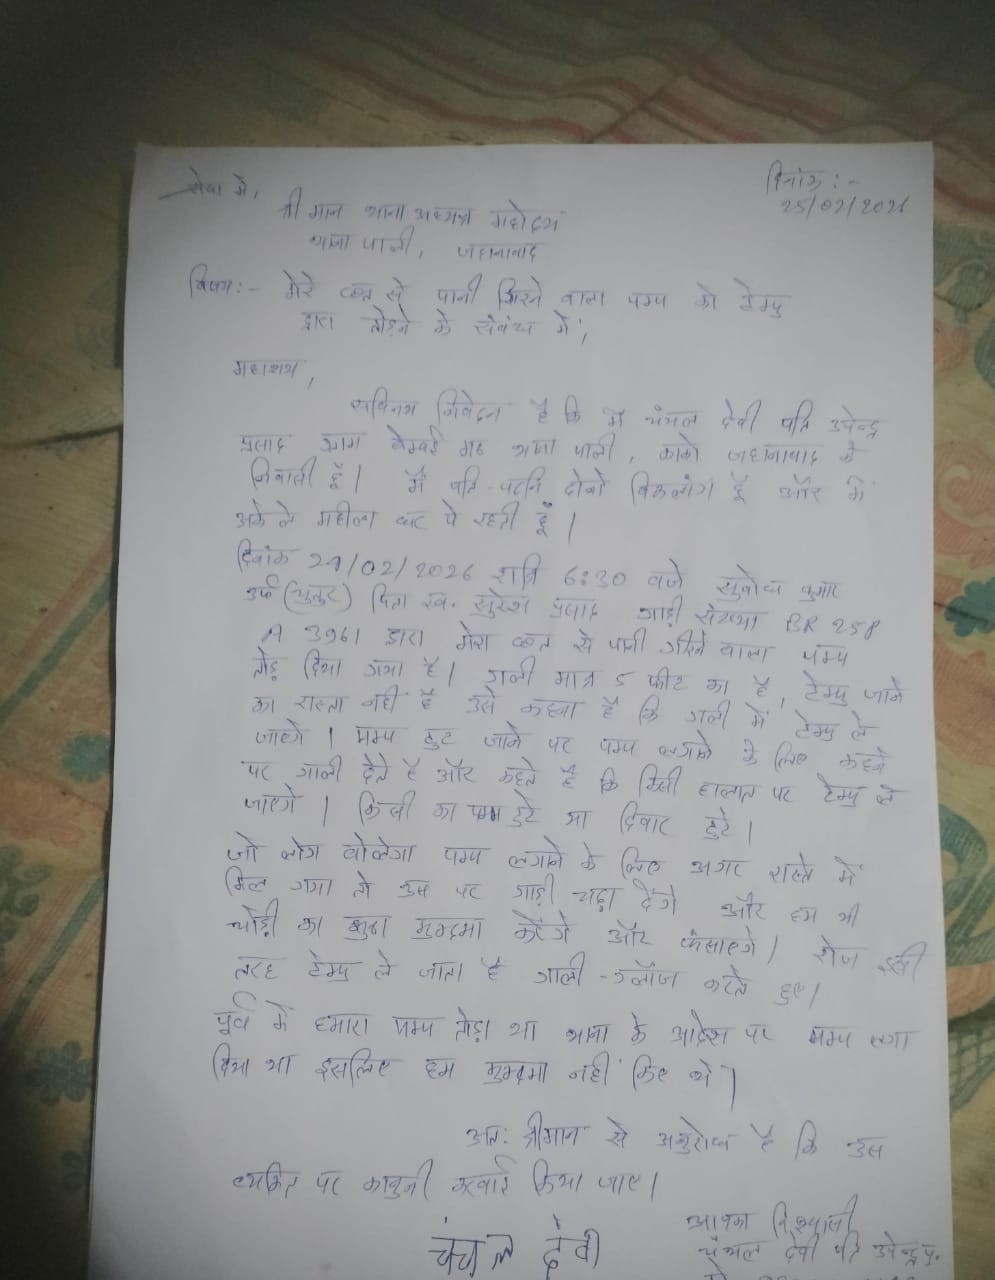 सेवा में,
दिनांक :-
25/02/2026
श्री मान थाना अध्यक्ष महोदय
थाना पाली, जहानाबाद
विषय:- मेरे छत से पानी गिरने वाला पम्प को टेम्पु
द्वारा तोड़ने के संबंध में,
महाशय,
सविनय निवेदन है कि मैं चंचल देवी पति उपेन्द्र
प्रसाद ग्राम थाना पाली, काको जहानाबाद के
निवासी हूँ। मैं पति-पत्नि दोनो विकलांग हूँ और में
अकेले महीला घर पे रहती हूं।
दिनांक 24/02/2026 रात्रि 6:30 बजे सुबोध कुमार
उर्फ पिता स्व. सुरेश प्रसाद गाड़ी संख्या BR 25P
A 3961 द्वारा मेरा छत से पानी गीरने वाला पम्प
तोड़ दिया गया है। गली मात्र 5 फीट का है, टेम्पु जाने
का रास्ता नहीं है उसे कहना है कि गली में टेम्पु ले
जाएगे। पम्प टुट जाने पर पम्प लगाने के लिए कहने
पर गाली देते है और कहते है कि किसी हालात पर टेम्पु ले
जाएगे। किसी का पम्प टुटे या दिवार टुटे।
जो लोग बोलेगा पम्प लगाने के लिए अगर रास्ते में
मिल गया तो उस पर गाड़ी चढ़ा देंगे और हम भी
चोड़ी का झुठा मुकदमा करेंगे और फंसाएगे। रोज इसी
तरह टेम्पु ले जाता है गाली-गलौज करते हुए।
पुर्व में हमारा पम्प तोड़ा था थाना के आदेश पर पम्प लगा
दिया था इसलिए हम मुकदमा नहीं किए थे।
अत: श्रीमान से अनुरोध है कि उस
व्यक्ति पर कानुनी करवाई किया जाए।
आपका विश्वासी
चंचल देवी पति उपेन्द्र प्र.
चंचल देवी